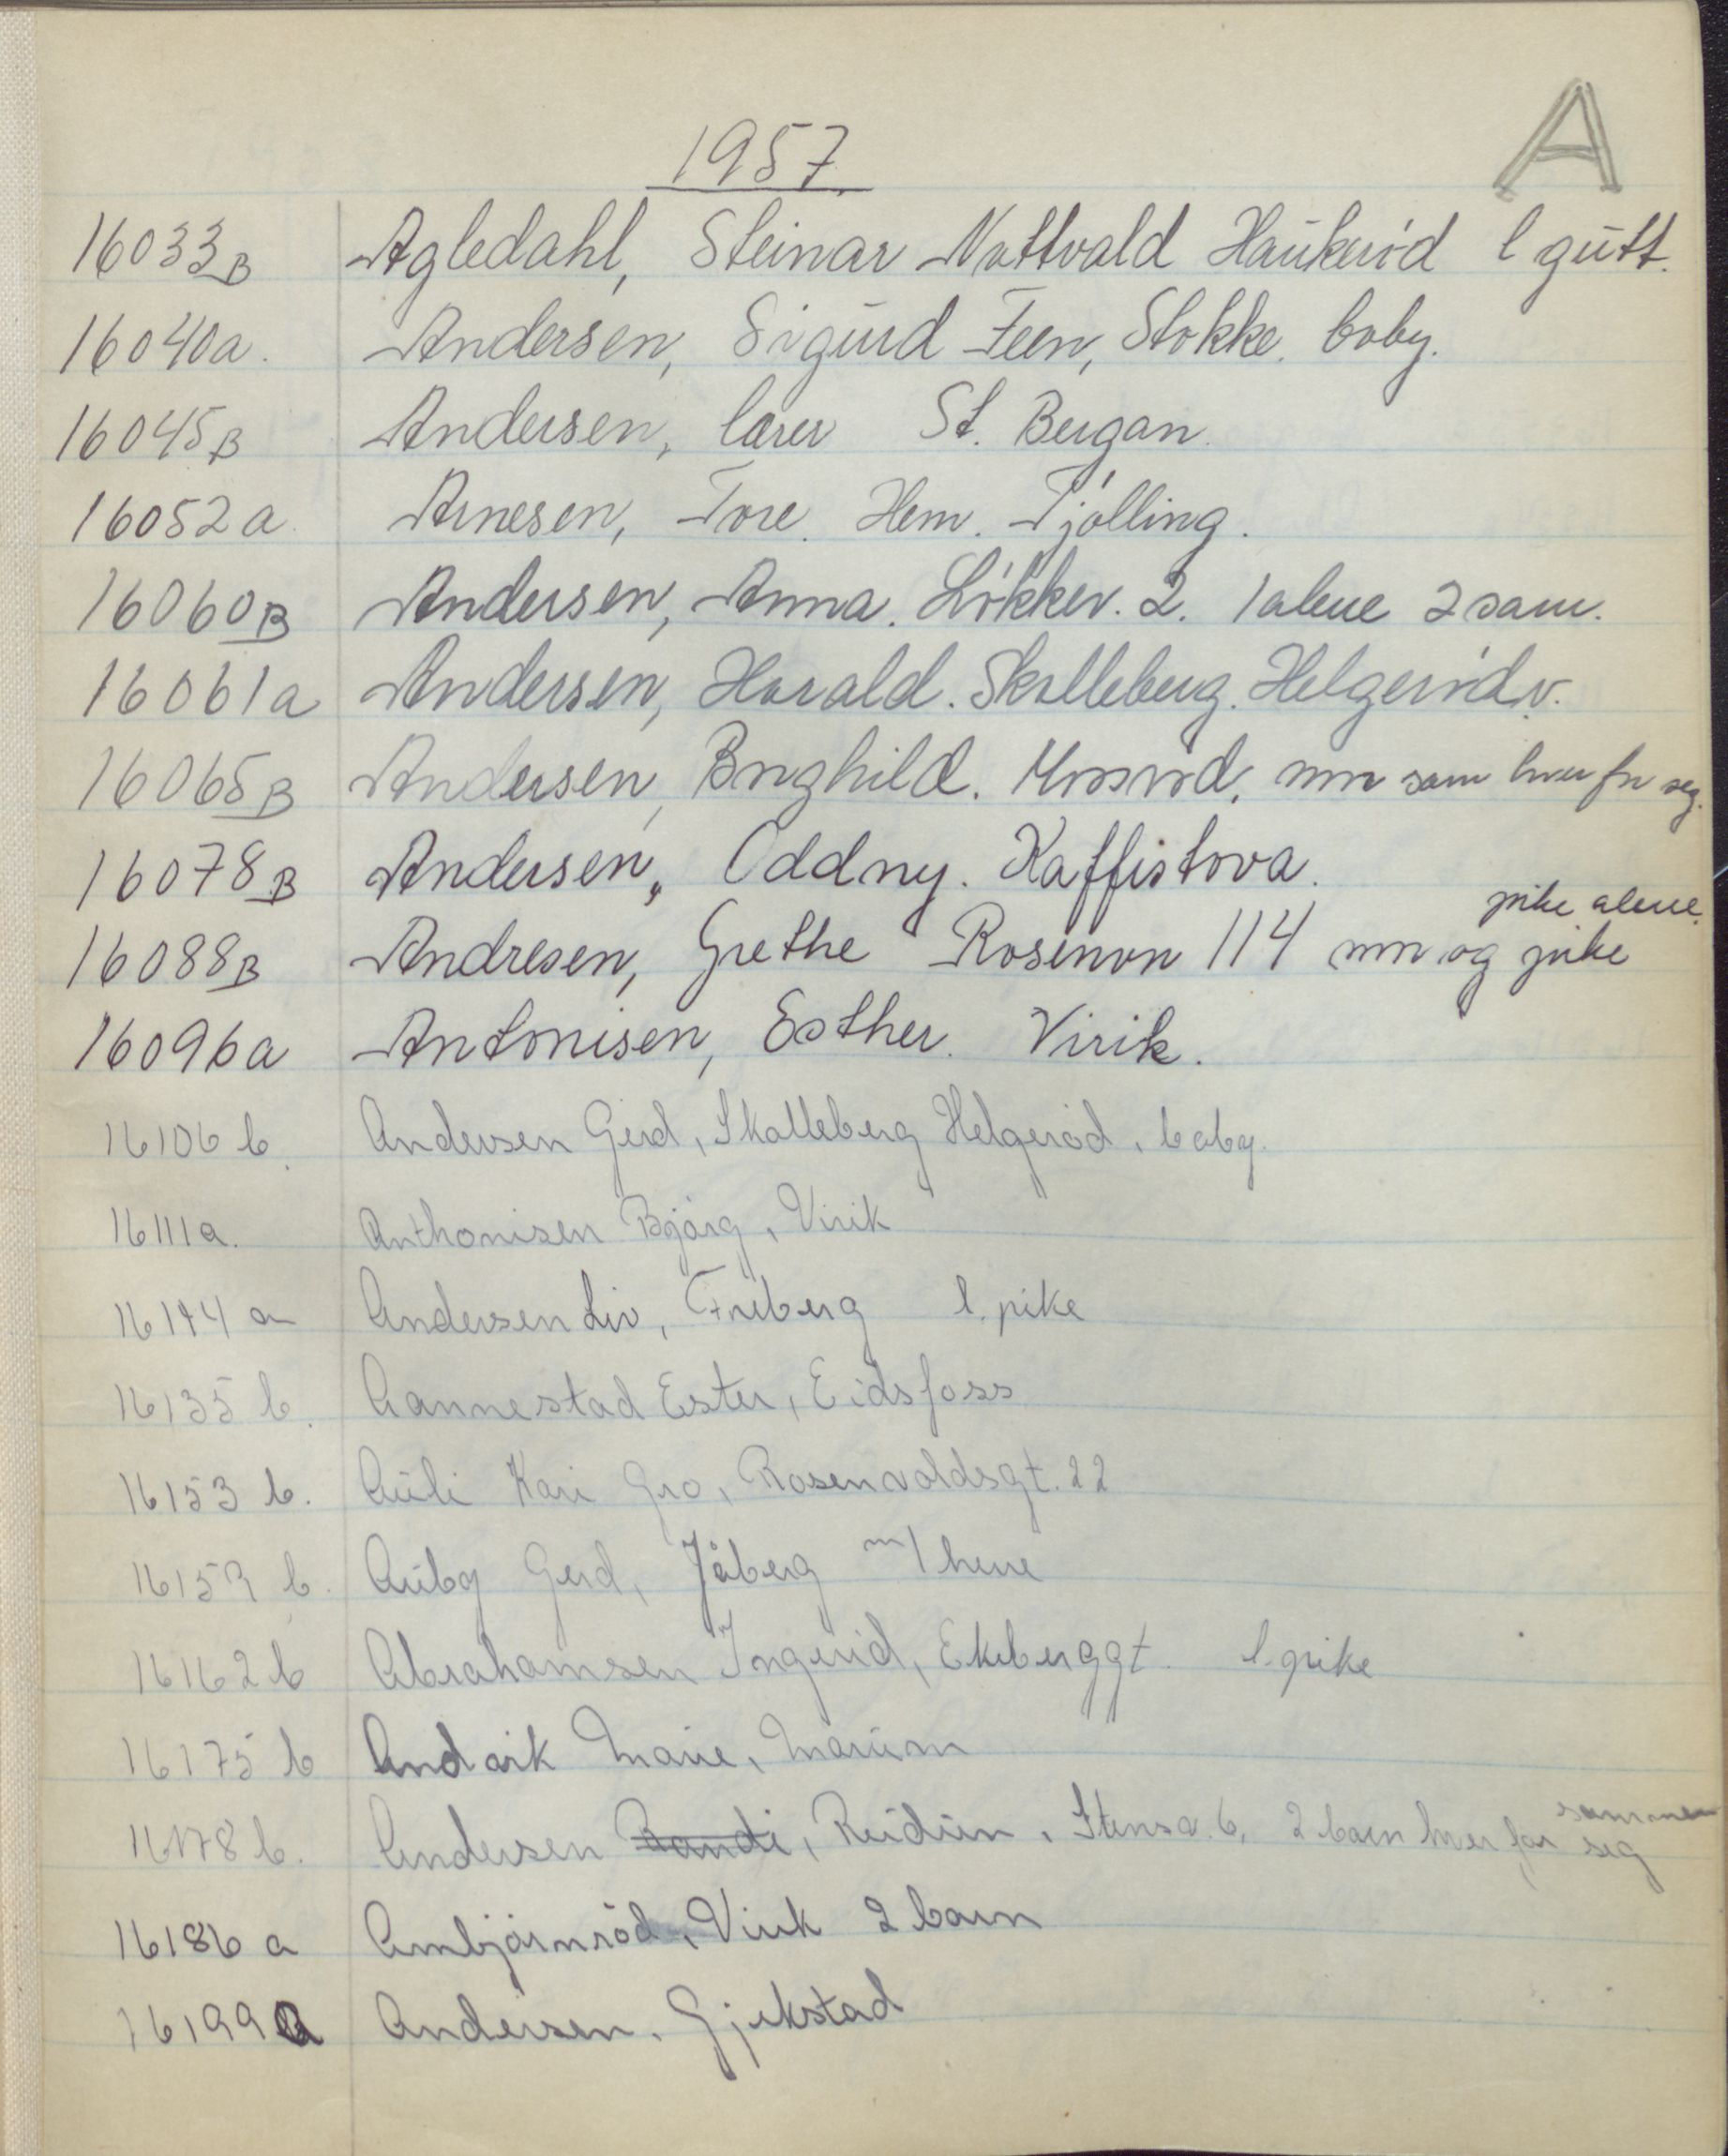 A
1957.
16033B Agledahl, Steinar Nattvald Haukerød 1 gutt.
16040a. Andersen, Sigurd Feen, Stokke. baby.
16045B Andersen, lærer St. Bergan.
16052a. Arnesen, Tore. Hem. Tjølling.
16060B Andersen, Anna. Løkkev. 2. 1 alene 2 sam.
16061a Andersen, Harald. Skalleberg. Helgerødv.
16065B Andersen, Borghild. Mosserød. mor som hver for seg.
16078B Andersen, Oddny. Kaffistova.
pike alene.
16088B Andresen, Grethe Rosenvn 114 mor og pike
16096a Antonisen, Esther. Virik.
16106 b. Andersen Gerd, Skalleberg Helgerød, baby.
16111a. Anthonisen Bjørg, Virik
16114 a Andersen Liv, Freberg 1. pike
16135 b. Aannestad Ester, Eidsfoss
16153 b. Auli Kari Gro, Rosenvoldsgt. 22
16159 b. Auby Gerd, Jåberg m/ herre
16162 b Abrahamsen Ingerid, Ekeberggt. 1. pike
16175 b Andvik Marie, Marum
sammen
16178 b. Andersen Randi, Reidun, Stensv. 6, 2 barn hver for seg
16186 a Ambjørnrød, Virik 2 barn
16199 a Andersen, Gjekstad